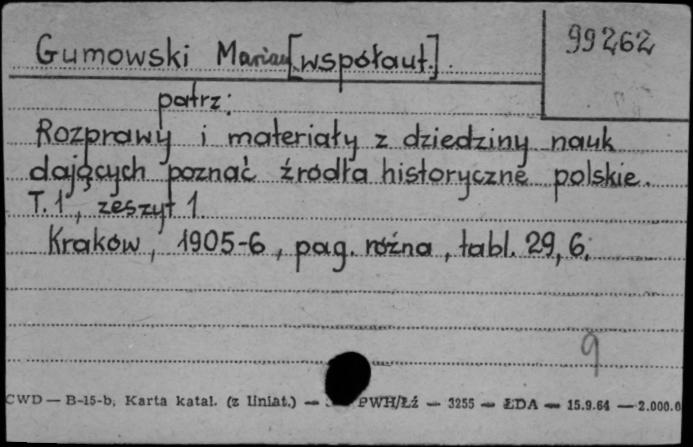 Gumowski Marian [współaut.].
99262
patrz:
Rozprawy i materiały z dziedziny nauk
dających poznać źródła historyczne polskie.
T. 1, zeszyt 1.
Kraków, 1905-6, pag. różna, tabl. 29, 6.
9
CWD — B-15-b, Karta katal. (z liniat.) — PWH/Łź — 3255 — ŁDA — 15.9.64 — 2.000.0